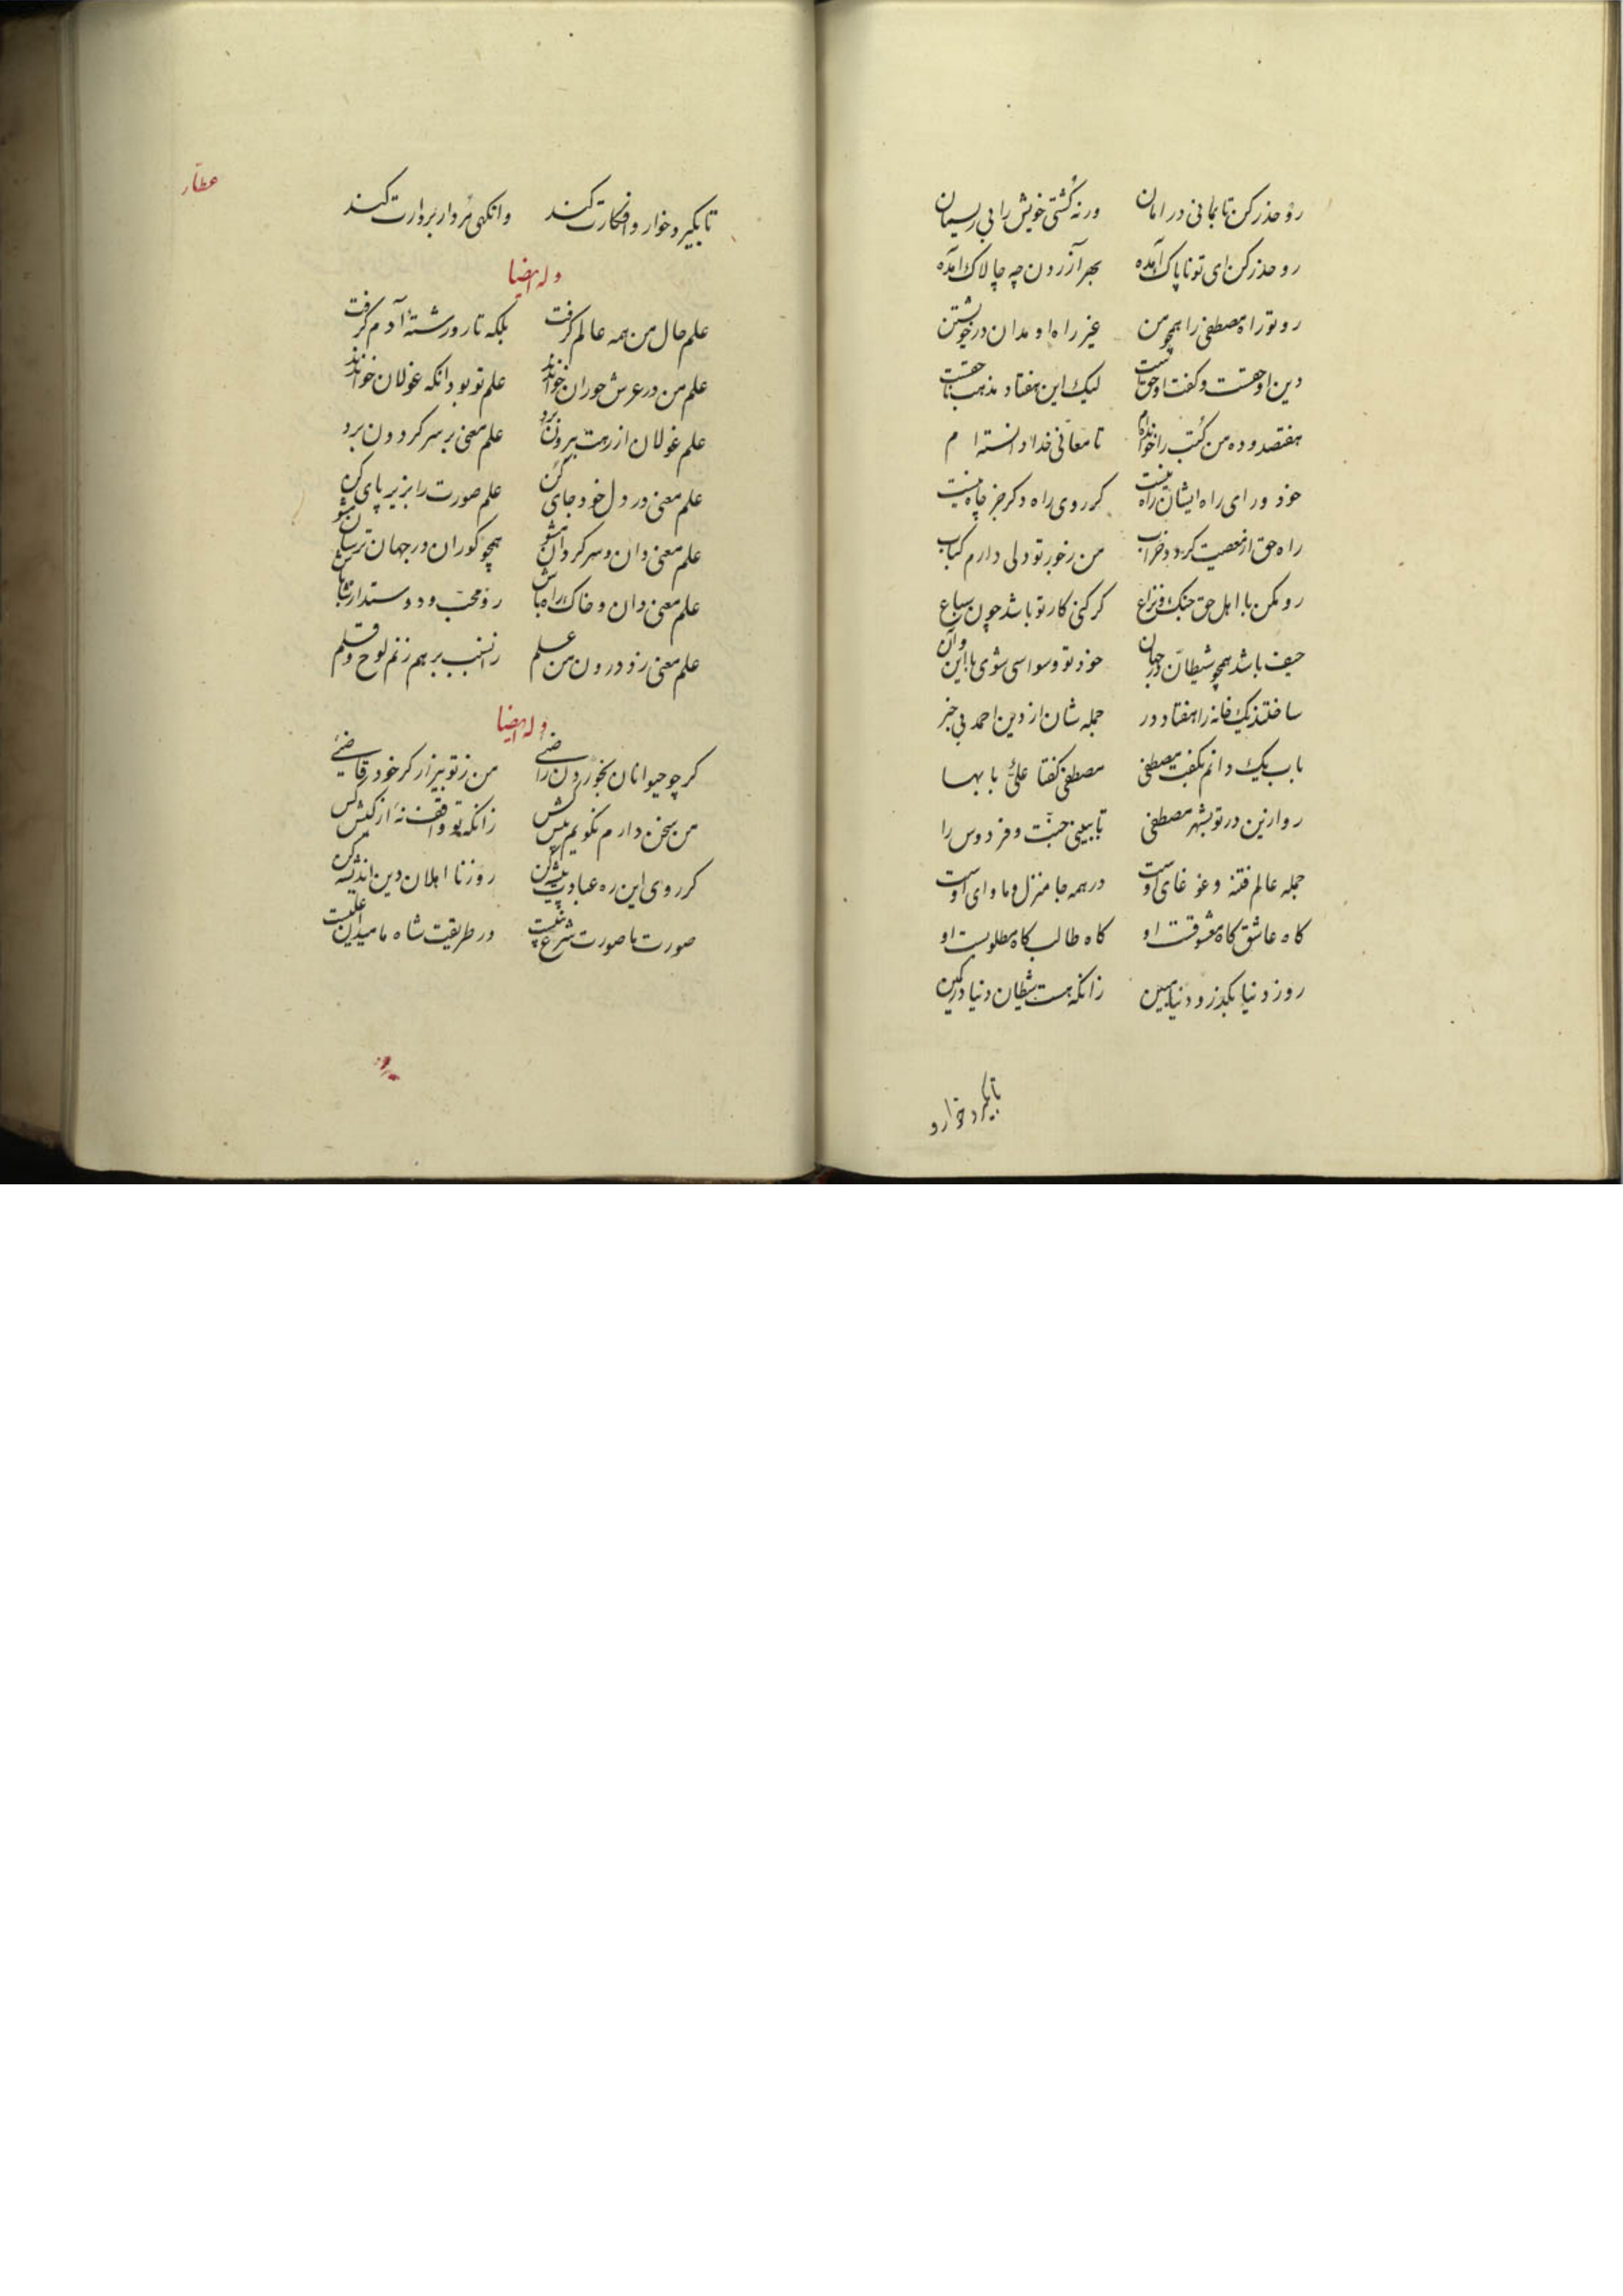 رو حذر کن تا بمانی در امان ورنه کشتی خویش را بی ریسمان
رو حذر کن ای تو ناپاک آمده بهر آزردن چه چالاک آمده
رو تو راه مصطفی را همچو من غیر راه او مدان در خویشتن
دین او حقست و گفت او حق است لیک این هفتاد مذهب ناحقست
هفتصد و ده من کتب را خوانده ام تا معانی خدا دانسته ام
خود ورای راه ایشان راه نیست کر روی راه دکر جز چاه نیست
راه حق از معصیت کردد خراب من ز خور تو دلی دارم کباب
رو مکن با اهل حق جنک و نزاع کر کنی کار تو باشد چون سباع
حیف باشد همچو شیطان در جهان خود تو وسواسی شوی با این و آن
ساختند یک خانه را هفتاد در جمله شان از دین احمد بی خبر
باب یک دانم بکفت مصطفی مصطفی کفتا علیّ بابها
رو ازین در تو بشهر مصطفی تا ببینی جنّت و فردوس را
جمله عالم فتنه و غوغای اوست در همه جا منزل و ماوای اوست
کاه عاشق کاه معشوقست او کاه طالب کاه مطلوبست او
رو ز دنیا بکذر و دنیا مبین زانکه هست شیطان دنیا در کمین
تا بکیرد خوار و
عطّار
تا بکیرد خوار و افکارت کند وانکهی مردار بردارت کند
وله ایضا
علم حال من همه عالم کرفت بلکه تار و رشتهٔ آدم کرفت
علم من در عرش حوران خواندند علم تو بود انکه غولان خواندند
علم غولان از رهت بیرون برد علم معنی بر سر کردون برد
علم معنی در دل خود جای کن علم صورت را بزیر پای کن
علم معنی دان و سرکردان مشو همچو کوران در جهان ترسان مشو
علم معنی دان و خاک راه باش رو محبّ و دوستدار شاه باش
علم معنی زد درون من علم زانسبب بر هم زنم لوح و قلم
وله ایضا
کر چو حیوانان بخوردن راضئی من ز تو بیزار کر خود قاضئی
من سخن دارم نکویم پیش کس زانکه تو واقف نهٔ از کیش کس
کر روی این ره عبادت پیشه کن رو ز نا اهلان دین اندیشه کن
صورت ما صورت شرع نبیست در طریقت شاه ما میدان علیست